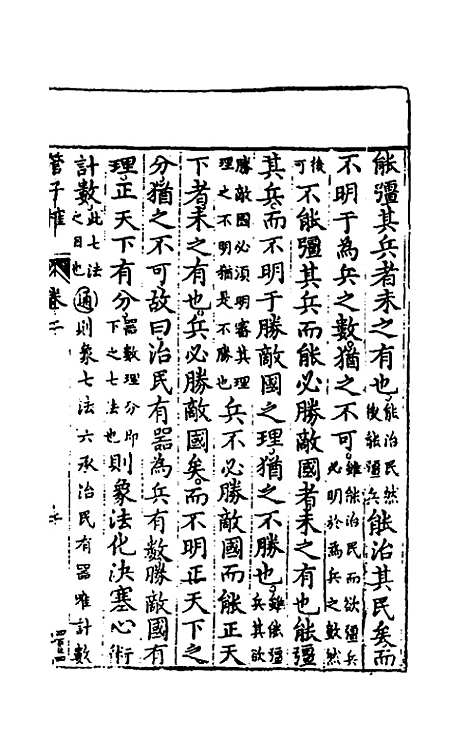 能彊其兵者未之有也能治民然後能彊兵能治其民矣而
不明于為兵之數猶之不可雖能治民而欲彊兵必明於為兵之數然
後可不能彊其兵而能必勝敵國者未之有也能彊
其兵而不明于勝敵國之理猶之不勝也雖能彊兵其欲
勝敵國必須明審其理理之不明猶是不勝也兵不必勝敵國而能正天
下者未之有也兵必勝敵國矣而不明正天下之
分猶之不可故曰治民有器為兵有數勝敵國有
理正天下有分器數理分即下之七法也則象法化決塞心術
計數此七法之目也通則象七法六承治民有器唯計數
管子榷 卷二